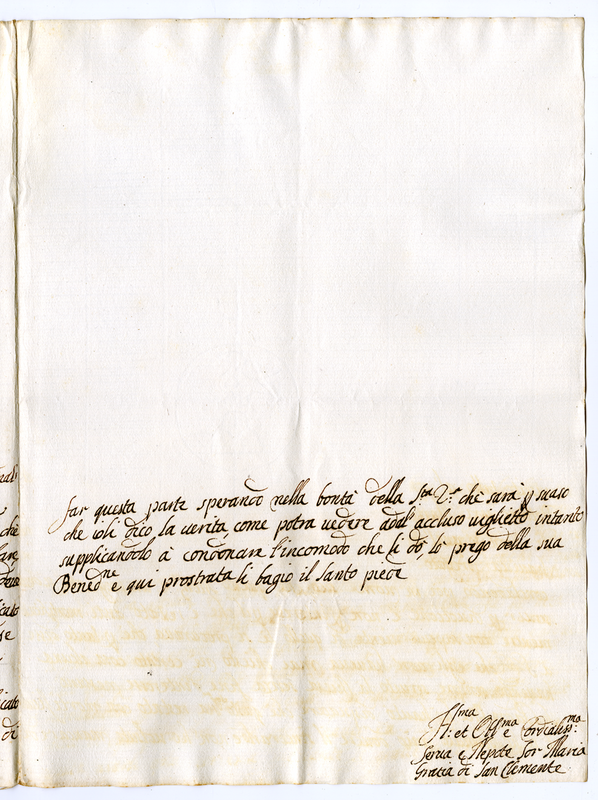 far questa parte sperando nella bontà della S.ta V.a che sarà p suaso
che ioli dico la uerita, come potra uedere dall accluso uiglietto intanto
supplicandolo à condonare l'incomodo che li dò, lò prego della sua
Bened.ne e qui prostrata li bagio il Santo piede
H.ma et Obb.ma e Cordialiss.ma
Serua e Nepote Sor Maria
Gratia di San Clemente